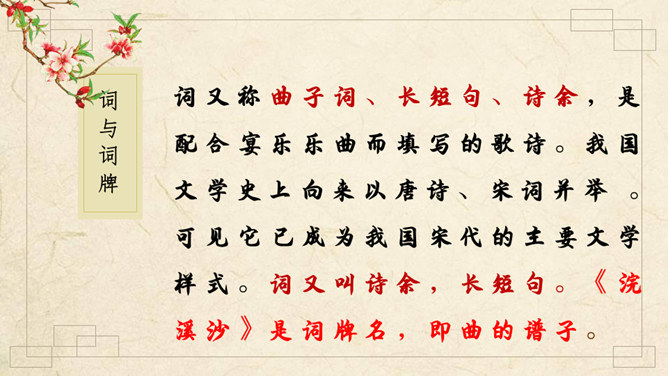 词与词牌
词又称曲子词、长短句、诗余，是
配合宴乐乐曲而填写的歌诗。我国
文学史上向来以唐诗、宋词并举 。
可见它已成为我国宋代的主要文学
样式。词又叫诗余，长短句。《浣
溪沙》是词牌名，即曲的谱子。